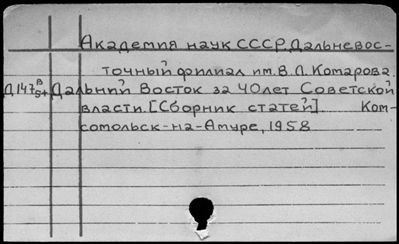 Академия наук СССР. Дальневос-
точный филиал им. В.Л. Комарова.
Дальний Восток за 40 лет Советской
власти. [Сборник статей]. Ком-
сомольск-на-Амуре, 1958